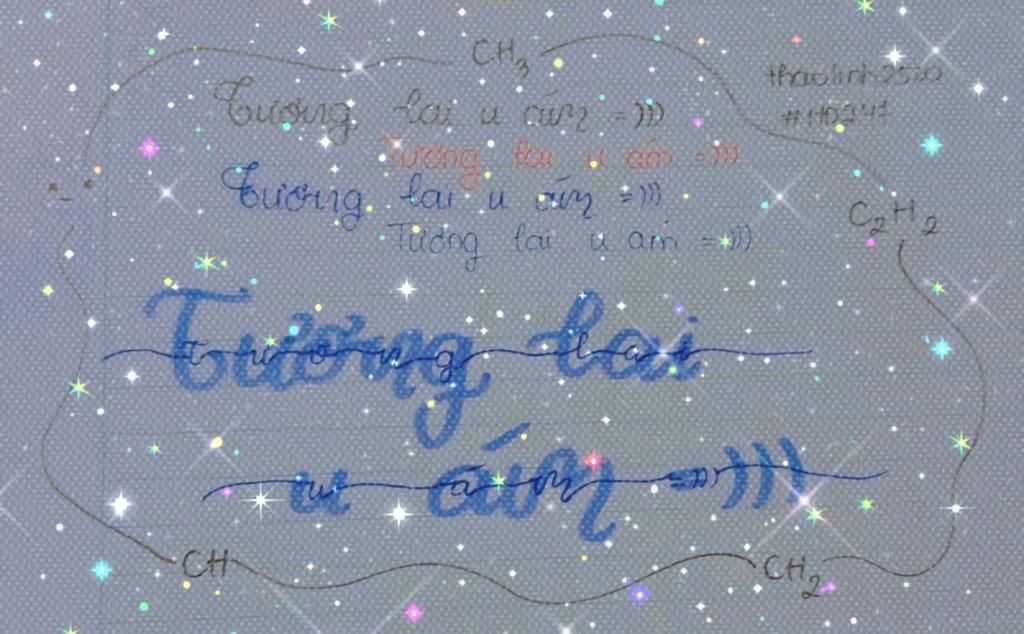 CH3
thaolinh2510
#HD247
Tương lai u ám =)))
Tương lai u ám =)))
Tương lai u ám =)))
Tương lai u ám =)))
C2H2
Tương lai
Tương lai
u ám =)))
u ám =)))
CH
CH2